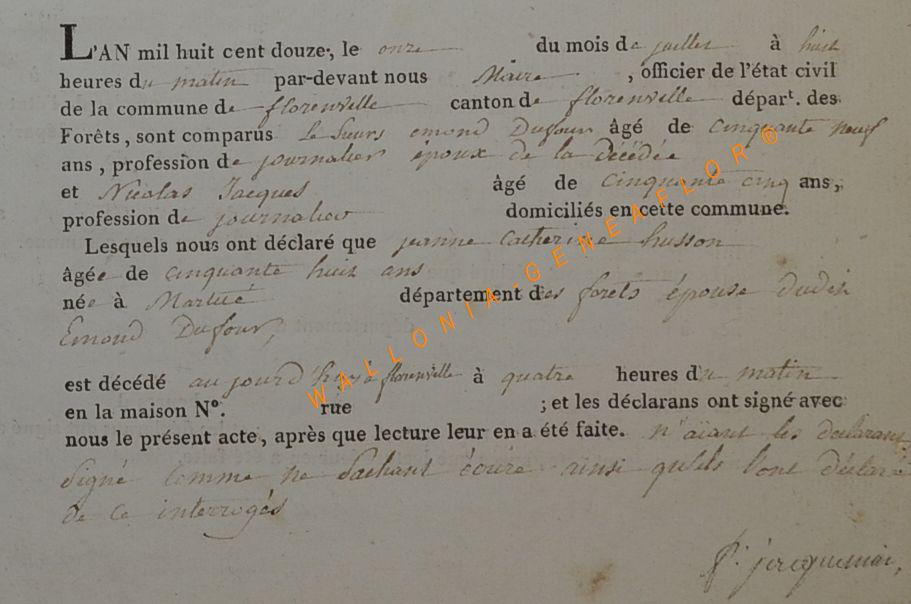 L'AN mil huit cent douze, le onze du mois de juillet à huit
heures du matin par-devant nous Maire , officier de l'état civil
de la commune de florenville canton de florenville départ. des
Forêts, sont comparus Le Sieurs emond Dufour âgé de cinquante neuf
ans, profession de journalier époux de la décédée
et Nicolas Jacques âgé de cinquante cinq ans,
profession de journalier domiciliés en cette commune.
Lesquels nous ont déclaré que jeanne Catherine husson
âgée de cinquante huit ans
née à Martué département des forets épouse dudit
Emond Dufour,
est décédé au jourd'huy à florenville à quatre heures du matin
en la maison N°. rue ; et les déclarans ont signé avec
nous le présent acte, après que lecture leur en a été faite. n'aiant les declarants
signé comme ne sachant écrire ainsi qu'ils l'ont déclaré
de ce interrogés
WALLONIA-GENEAFLOR ©